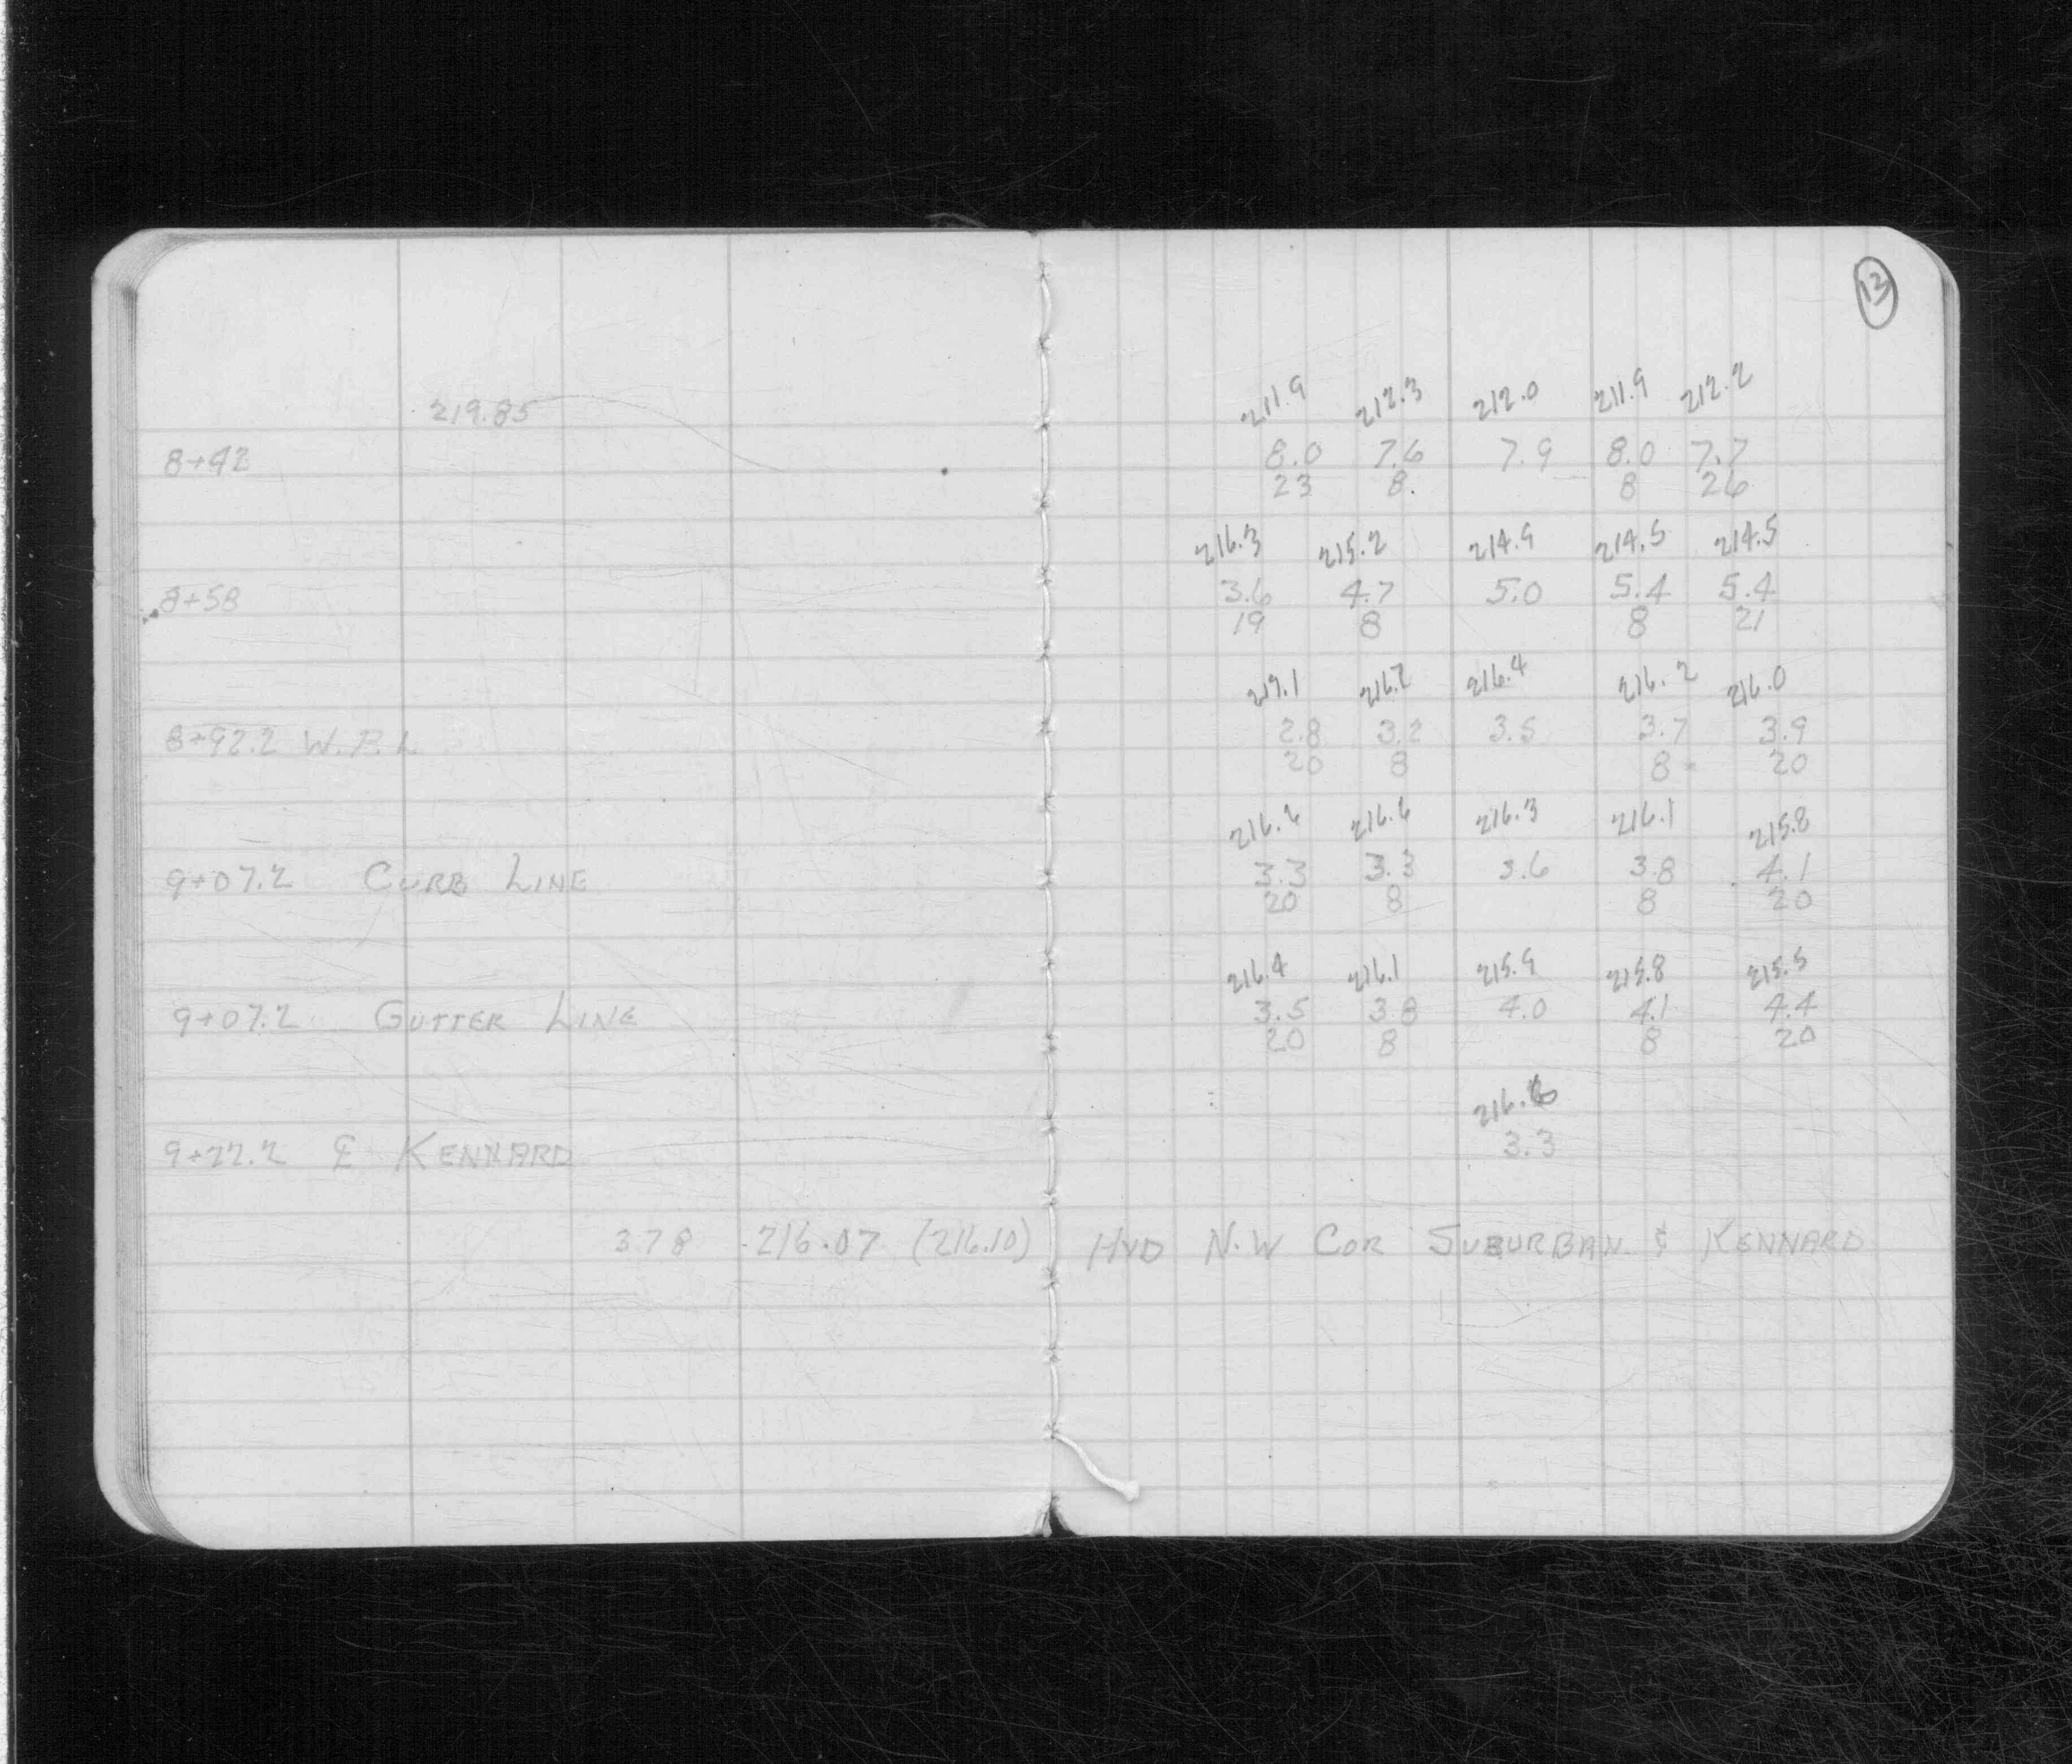 13
211.9 212.3 212.0 211.9 212.2
219.85
8+42 8.0 7.6 7.9 8.0 7.7
23 8. 8 26
216.3 215.2 214.9 214.5 214.5
8+58 3.6 4.7 5.0 5.4 5.4
19 8 8 21
217.1 216.7 216.4 216.2 216.0
8+92.2 W.P.L. 2.8 3.2 3.5 3.7 3.9
20 8 8 20
216.6 216.6 216.3 216.1 215.8
9+07.2 CURB LINE 3.3 3.3 3.6 3.8 4.1
20 8 8 20
216.4 216.1 215.9 215.8 215.5
9+07.2 GUTTER LINE 3.5 3.8 4.0 4.1 4.4
20 8 8 20
216.6
9+22.2 ℄ KENNARD 3.3
3.78 216.07 (216.10) HYD N.W COR SUBURBAN & KENNARD